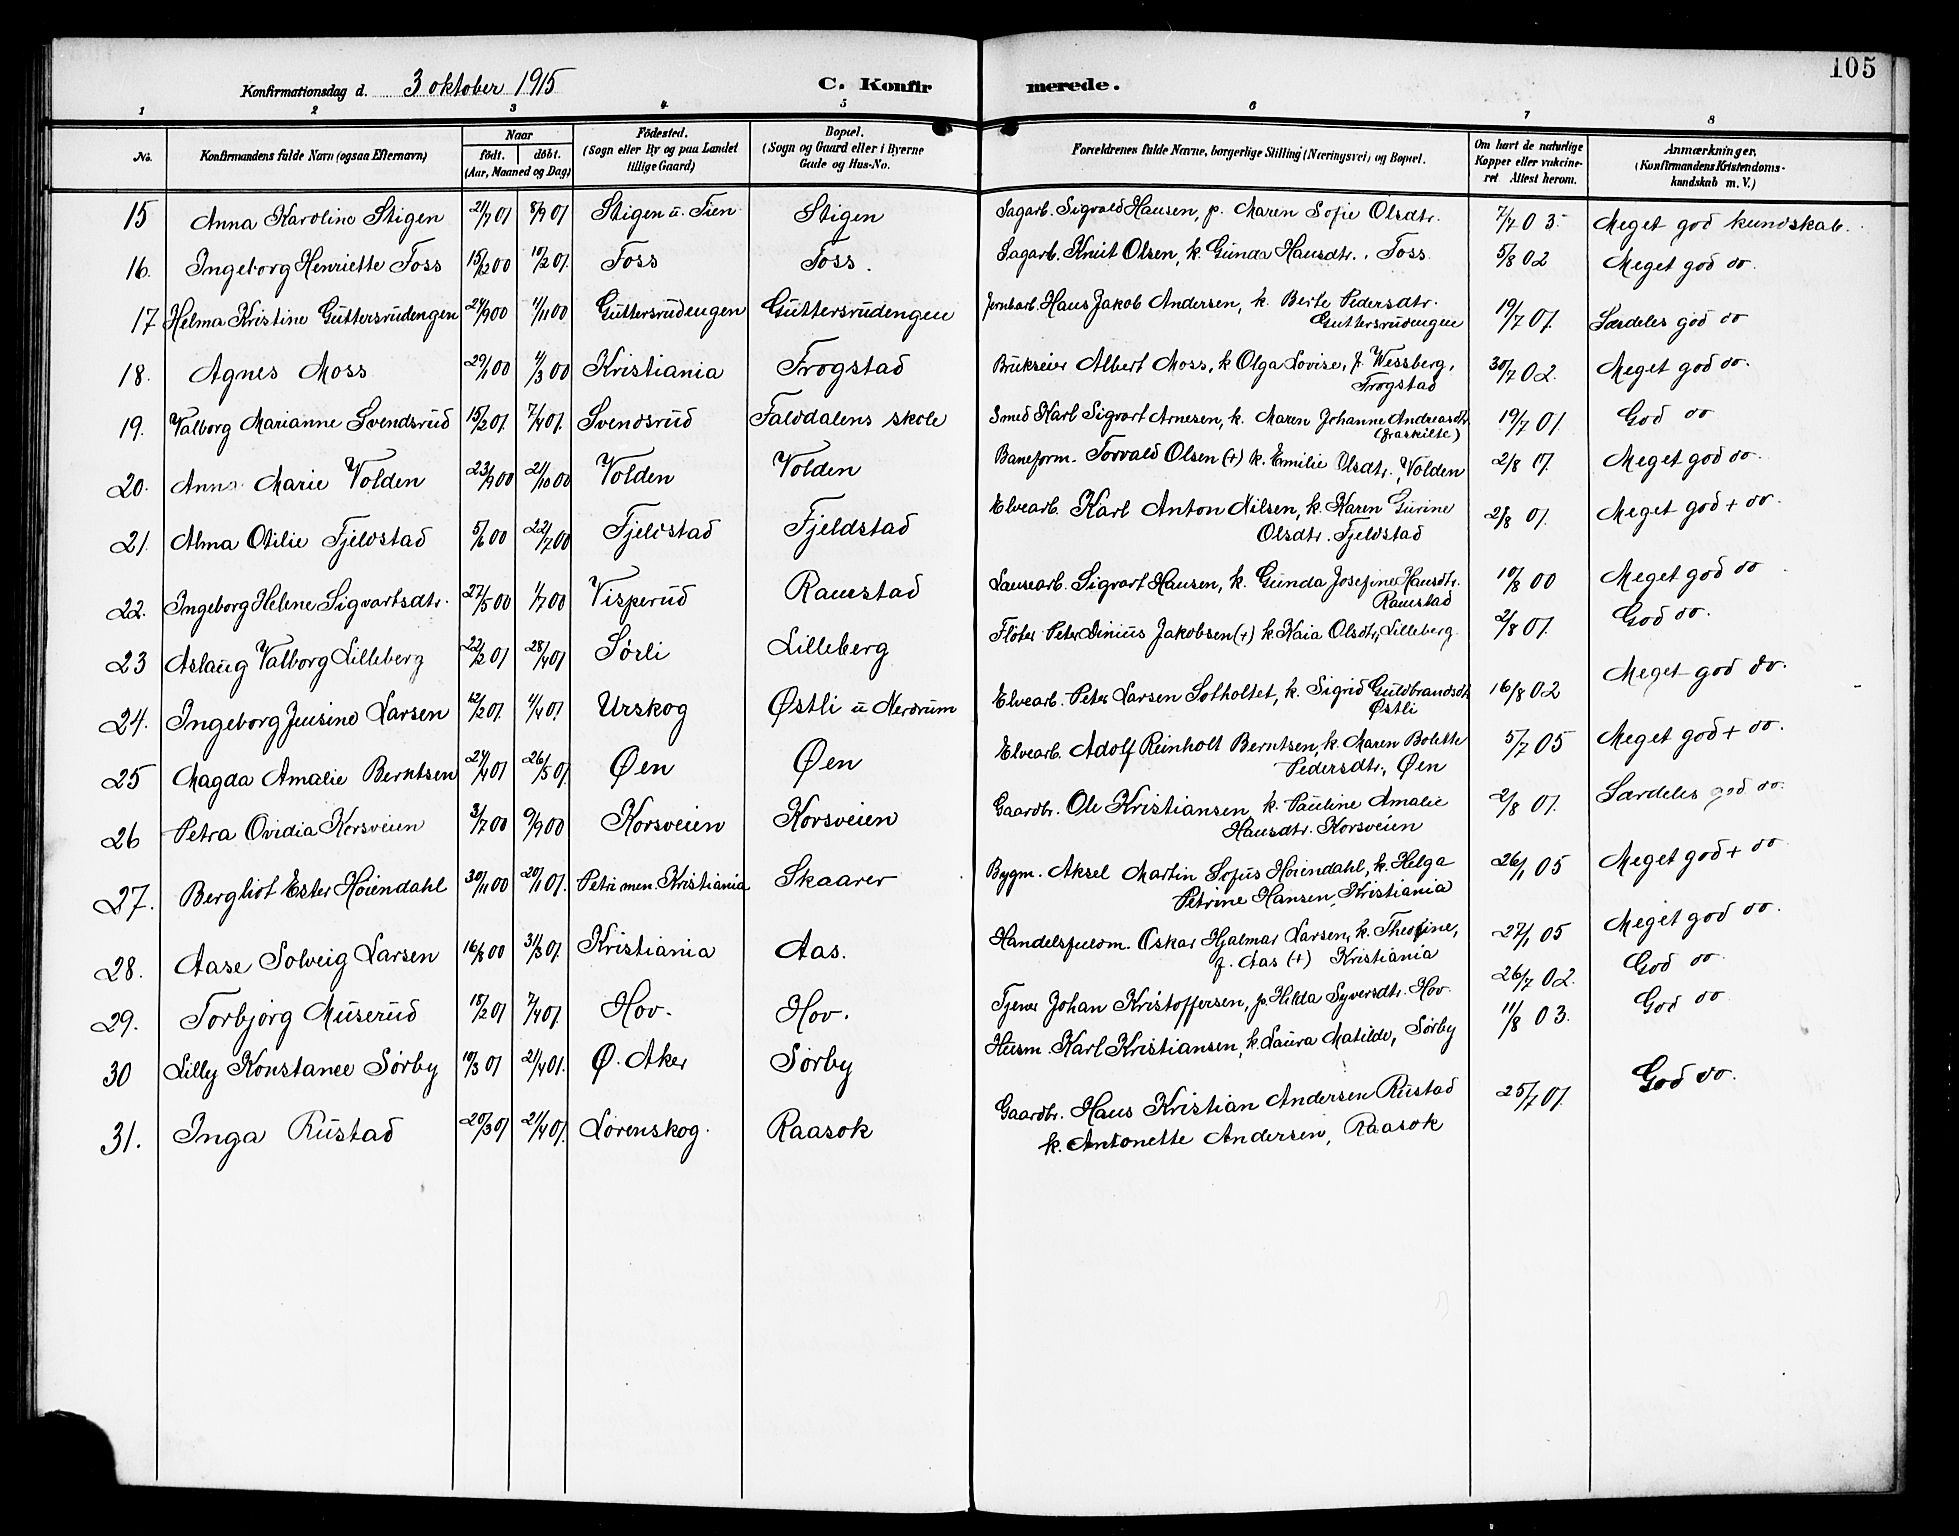 105
Konfirmationsdag d. 3 oktober 1915 C. Konfirmerede.
1 2 3 4 5 6 7 8
No. Konfirmandens fulde Navn (ogsaa Efternavn) Naar født. døbt. (Aar, Maaned og Dag) Fødested. (Sogn eller By og paa Landet tillige Gaard) Bopæl. (Sogn og Gaard eller i Byerne Gade og Hus-No. Forældrenes fulde Navne, borgerlige Stilling (Næringsvei) og Bopæl. Om havt de naturlige Kopper eller vakcineret Attest herom. Anmærkninger, (Konfirmandens Kristendomskundskab m. V.)
15 Anna Karoline Stigen 21/7 01 8/9 01 Stigen u. Tien Stigen Sagarb. Sigvald Hansen, p. Maren Sofie Olsdtr. 7/7 03 Meget god kundskab.
16. Ingeborg Henriette Foss 15/12 00 10/2 01. Foss Foss. Sagarb. Knut Olsen, k. Gunda Hansdtr., Foss 5/8 02 Meget god do.
17 Helma Kristine Guttersrudengen 24/9 00 4/11 00 Guttersrudengen Guttersrudengen Jernbarb. Hans Jakob Andersen, k. Berte Pedersdtr. 19/7 01. Særdeles god do
Guttersrudengen
18. Agnes Moss 29/1 00 4/3 00 Kristiania Frogstad Brukseier Albert Moss, k Olga Lovise, f. Wessberg, 30/7 02. Meget god do.
Frogstad
19. Valborg Marianne Svendsrud 15/2 01. 7/4 01. Svendsrud Faldalens skole Smed Karl Sigvart Arnesen, k. Maren Johanne Andreasdtr. 19/7 01. God do
(fraskilte)
20. Anna Marie Volden 23/9 00 21/10 00 Volden Volden Baneform. Torvald Olsen (+) k. Emilie Olsdtr., Volden 2/8 17. Meget god do.
21. Alma Otilie Fjeldstad 5/6 00 22/7 00 Fjeldstad Fjeldstad Elvearb. Karl Anton Nilsen, k. Karen Gurine 2/8 01. Meget god + do.
Olsdtr. Fjeldstad
22. Ingeborg Helene Sigvartsdtr. 27/5 00 1/7 00 Visperud Ramstad Lausearb. Sigvart Hansen, k. Gunda Josefine Hansdtr. 10/8 00 Meget god do
Ramstad
23 Aslaug Valborg Lilleberg 22/2 01 28/4 01 Sørli Lilleberg Fløter Peter Dinius Jakobsen (+) k Kaia Olsdtr, Lilleberg 2/8 01. God do.
24. Ingeborg Jensine Larsen 12/2 01. 4/4 01 Urskog Østli u Nerdrum Elvearb. Peter Larsen Sotholtet, k. Sigrid Guldbrandsdtr. 16/8 02 Meget god do.
Østli
25 Magda Amalie Berntsen 24/4 01 26/5 01. Øen Øen Elvearb. Adolf Reinholt Berntsen, k. Maren Bolette 5/7 05 Meget god + do.
Pedersdtr., Øen
26 Petra Ovidia Korsveien 3/7 00 9/9 00 Korsveien Korsveien Gaardbr. Ole Kristiansen, k. Pauline Amalie 2/8 01. Særdeles god do.
Hansdtr. Korsveien
27. Bergliot Ester Høiendahl 30/11 00 20/1 01. Petri men. Kristiania Skaarer Bygm. Aksel Martin Sofus Høiendahl, k. Helga 26/1 05 Meget god + do
Petrine Hansen, Kristiania
28. Aase Solveig Larsen 16/8 00 31/3 01. Kristiania Aas. Handelsfuldm. Oskar Hjalmar Larsen, k. Theoline, 27/1 05 Meget god do.
f. Aas (+) Kristiania
29. Torbjørg Muserud 18/2 01 7/4 01. Hov. Hov. Tjener Johan Kristoffersen, p. Hilda Syversdtr. Hov. 26/7 02. God do.
30 Lilly Konstance Sørby 10/3 01 21/4 01. Ø. Aker Sørby Husm. Karl Kristiansen, k. Laura Matilde, Sørby 11/8 03. God do
31. Inga Rustad 20/3 01 21/4 01. Lørenskog. Raasok Gaardbr. Hans Kristian Andersen Rustad 25/7 01. God do.
k. Antonette Andersen, Raasok